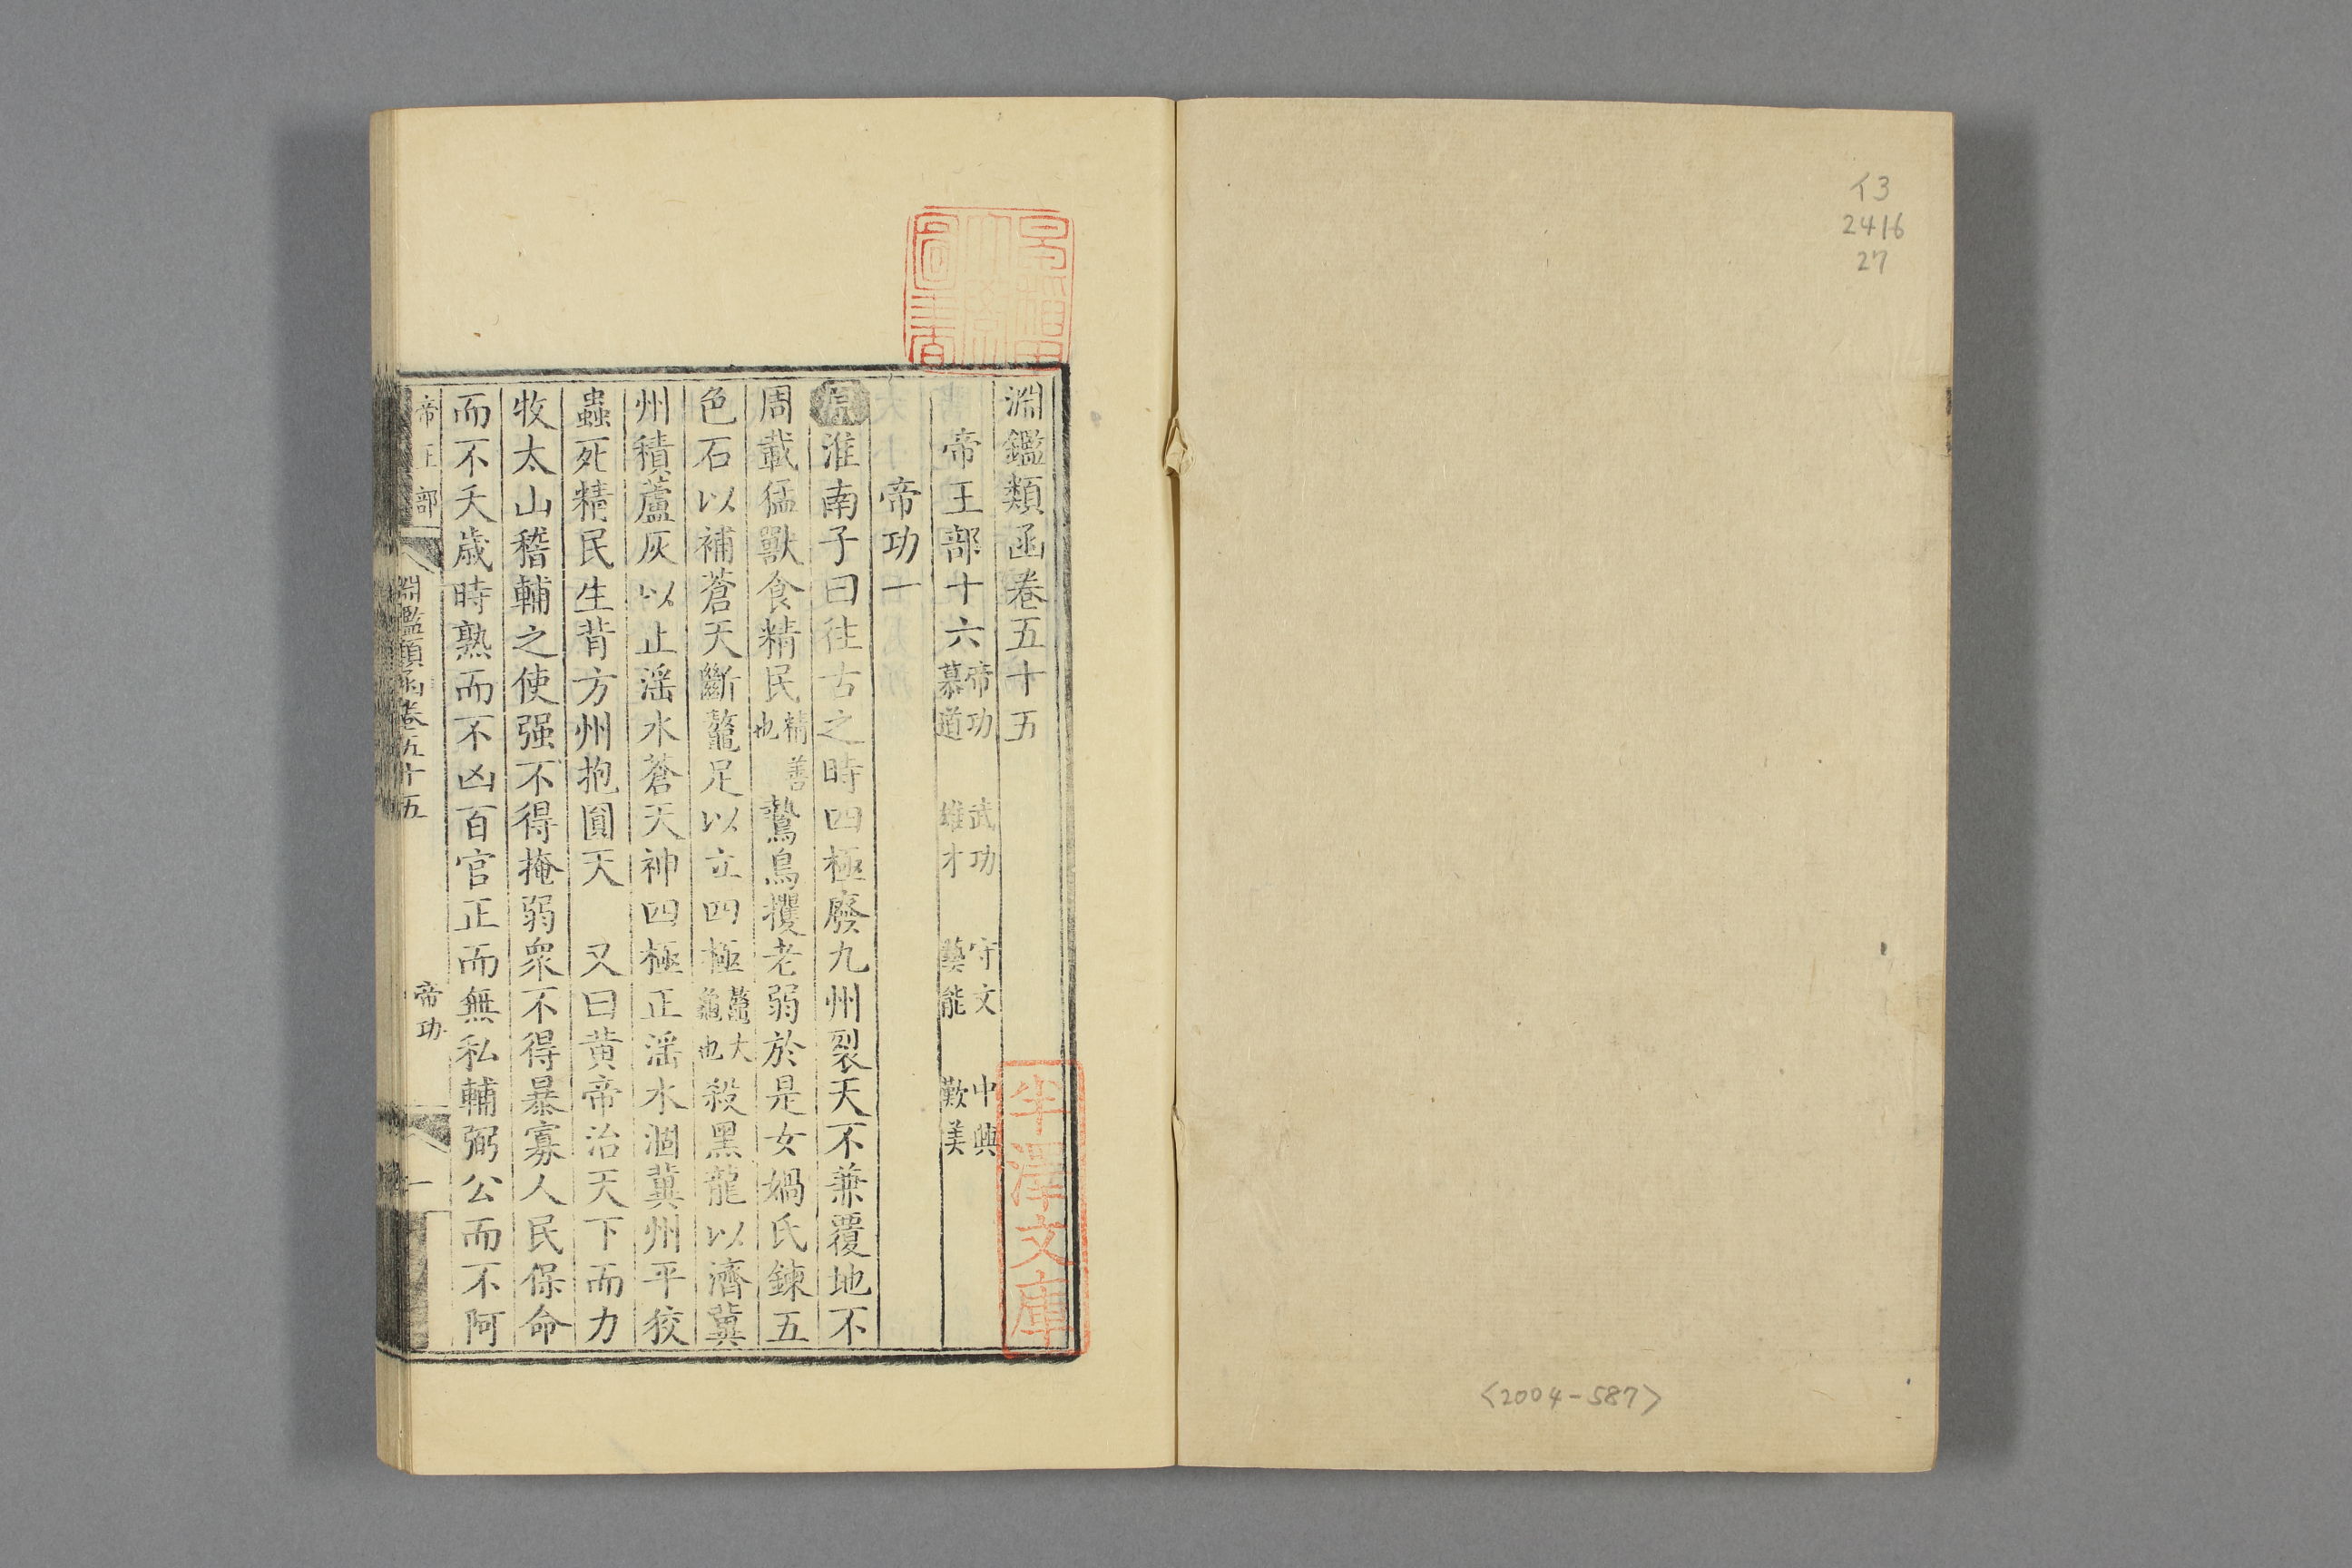 イ3
2416
27
<2004-587>
淵鑑類函卷五十五
帝王部十六 帝功 武功 守文 中興 慕道 雄才 藝能 歎美
帝功一
原淮南子曰往古之時四極廢九州裂天不兼覆地不
周載猛獸食精民精善也鷙鳥攫老弱於是女媧氏鍊五
色石以補蒼天斷鼇足以立四極鼇大龜也殺黑龍以濟冀
州積蘆灰以止淫水蒼天神四極正淫水涸冀州平狡
蟲死精民生背方州抱圓天 又曰黃帝治天下而力
牧太山稽輔之使强不得掩弱衆不得暴寡人民保命
而不夭歲時熟而不凶百官正而無私輔弼公而不阿
帝王部 淵鑑類函卷五十五 帝功 一
半澤文庫